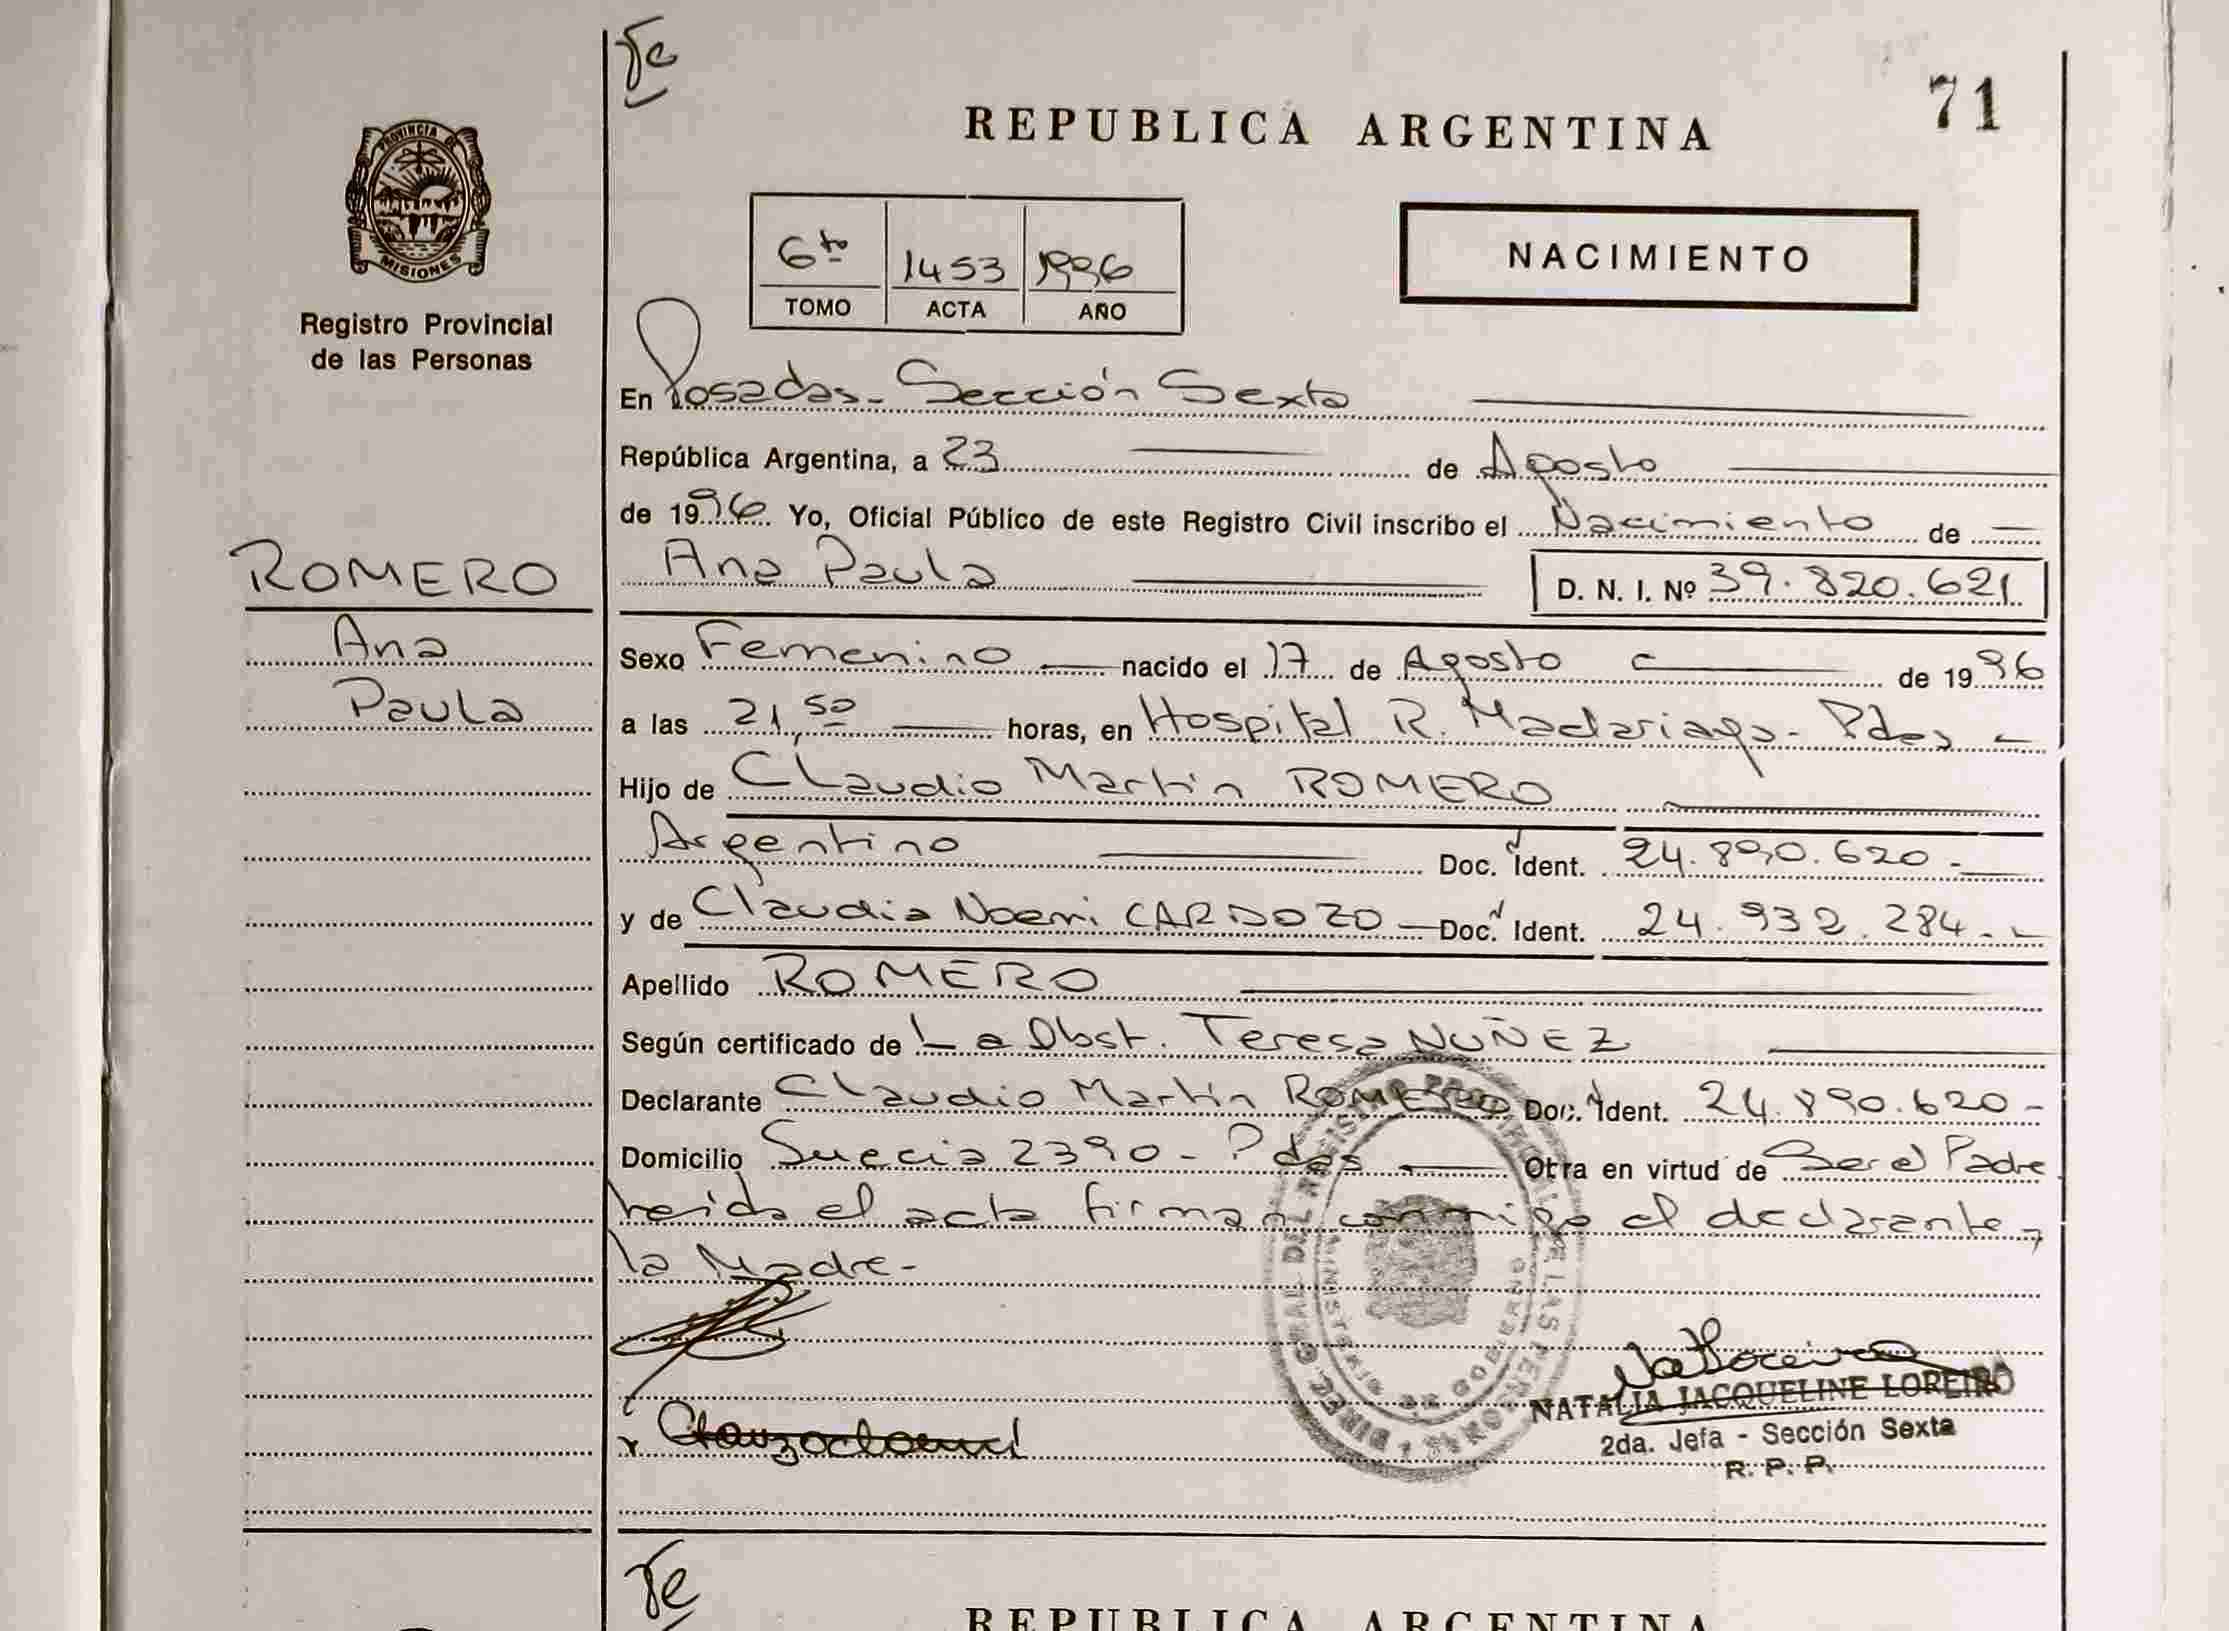 Te
REPUBLICA ARGENTINA
71
PROVINCIA DE
MISIONES
Registro Provincial
de las Personas
6to 1453 1996
TOMO ACTA AÑO
NACIMIENTO
En Posadas - Sección Sexta
República Argentina, a 23 de Agosto
de 1996 Yo, Oficial Público de este Registro Civil inscribo el Nacimiento de
ROMERO
Ana
Paula
Ana Paula D. N. I. Nº 39.820.621
Sexo Femenino nacido el 17 de Agosto de 1996
a las 21,50 horas, en Hospital R. Madariaga - Pdas -
Hijo de Claudio Martin ROMERO
Argentino Doc. Ident. 24.890.620 -
y de Claudia Noemi CARDOZO - Doc. Ident. 24.932.284 -
Apellido ROMERO
Según certificado de La Obst. Teresa NUÑEZ
Declarante Claudio Martin ROMERO Doc. Ident. 24.890.620 -
Domicilio Suecia 2390 - Pdas Otra en virtud de Ser el Padre
leida el acta firman conmigo el declarante y
la Madre -
DIREC. GRAL. DEL REGISTRO PROVINCIAL DE LAS PERSONAS
MINISTERIO DE GOBIERNO
NATALIA JACQUELINE LOREIRO
2da. Jefa - Sección Sexta
R. P. P.
Te
REPUBLICA ARGENTINA